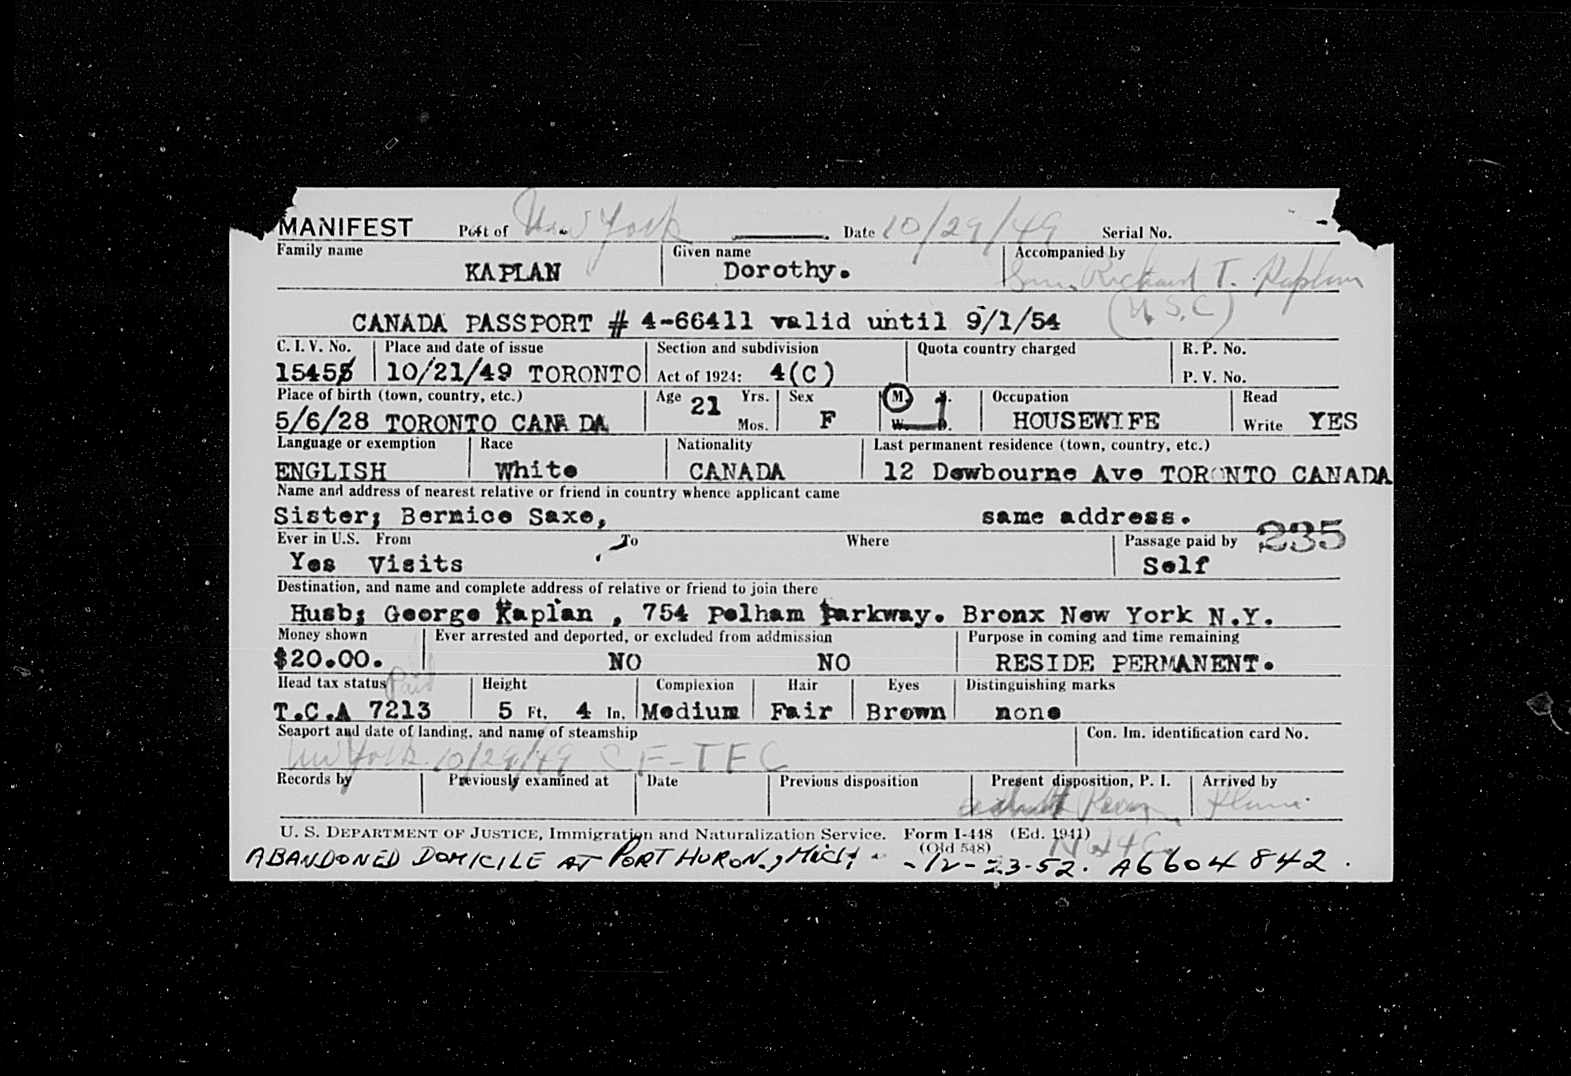 MANIFEST Port of New York Date 10/29/49 Serial No.
Family name Given name Accompanied by
KAPLAN Dorothy. Son, Richard T. Kaplan
CANADA PASSPORT # 4-66411 valid until 9/1/54 (U.S.C)
C. I. V. No. Place and date of issue Section and subdivision Quota country charged R. P. No.
15455 10/21/49 TORONTO Act of 1924: 4(C) P. V. No.
Place of birth (town, country, etc.) Age 21 Yrs. Sex M. S. Occupation Read
5/6/28 TORONTO CANA DA Mos. F W. D. HOUSEWIFE Write YES
Language or exemption Race Nationality Last permanent residence (town, country, etc.)
ENGLISH White CANADA 12 Dewbourne Ave TORONTO CANADA
Name and address of nearest relative or friend in country whence applicant came
Sister; Bernice Saxe, same address.
235
Ever in U.S. From To Where Passage paid by
Yes Visits Self
Destination, and name and complete address of relative or friend to join there
Husb; George Kaplan , 754 Pelham Parkway. Bronx New York N.Y.
Money shown Ever arrested and deported, or excluded from addmission Purpose in coming and time remaining
$20.00. NO NO RESIDE PERMANENT.
Head tax status Paid Height Complexion Hair Eyes Distinguishing marks
T.C.A 7213 5 Ft. 4 In. Medium Fair Brown none
Seaport and date of landing, and name of steamship Con. Im. identification card No.
New York 10/29/49 CF-TFC
Records by Previously examined at Date Previous disposition Present disposition, P. I. Arrived by
Plane
U. S. DEPARTMENT OF JUSTICE, Immigration and Naturalization Service. Form I-448 (Ed. 1941)
(Old 548)
ABANDONED DOMICILE AT PORT HURON, MICH. - 12-23-52. A6604842.